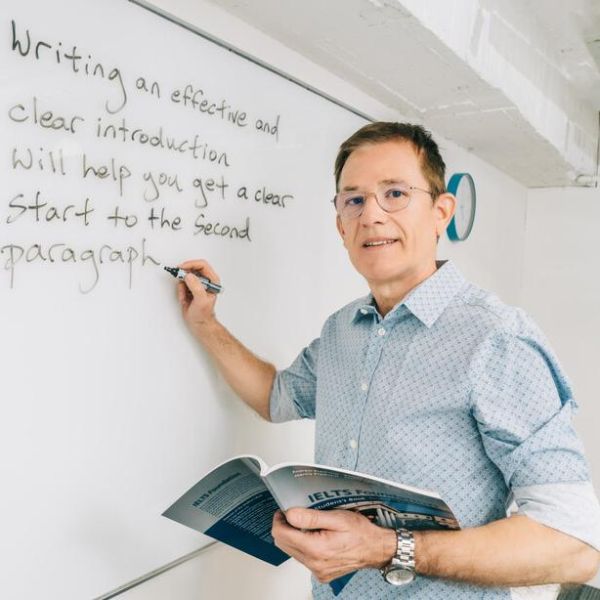 Writing an effective and
clear introduction
Will help you get a clear
Start to the Second
paragraph
IELTS Foundation
Student's Book
IELTS Foundation